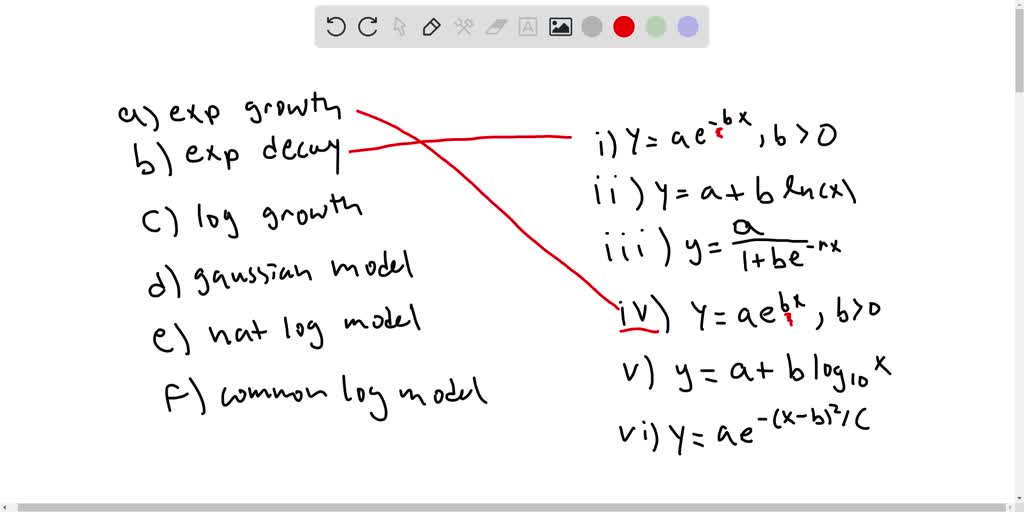 a) exp growth
b) exp decay
c) log growth
d) gaussian model
e) nat log model
f) common log model
i) y = ae^-bx, b > 0
ii) y = a + b ln(x)
iii) y = a/(1+be^-rx)
iv) y = ae^bx, b>0
v) y = a + b log₁₀ x
vi) y = ae^-(x-b)²/c